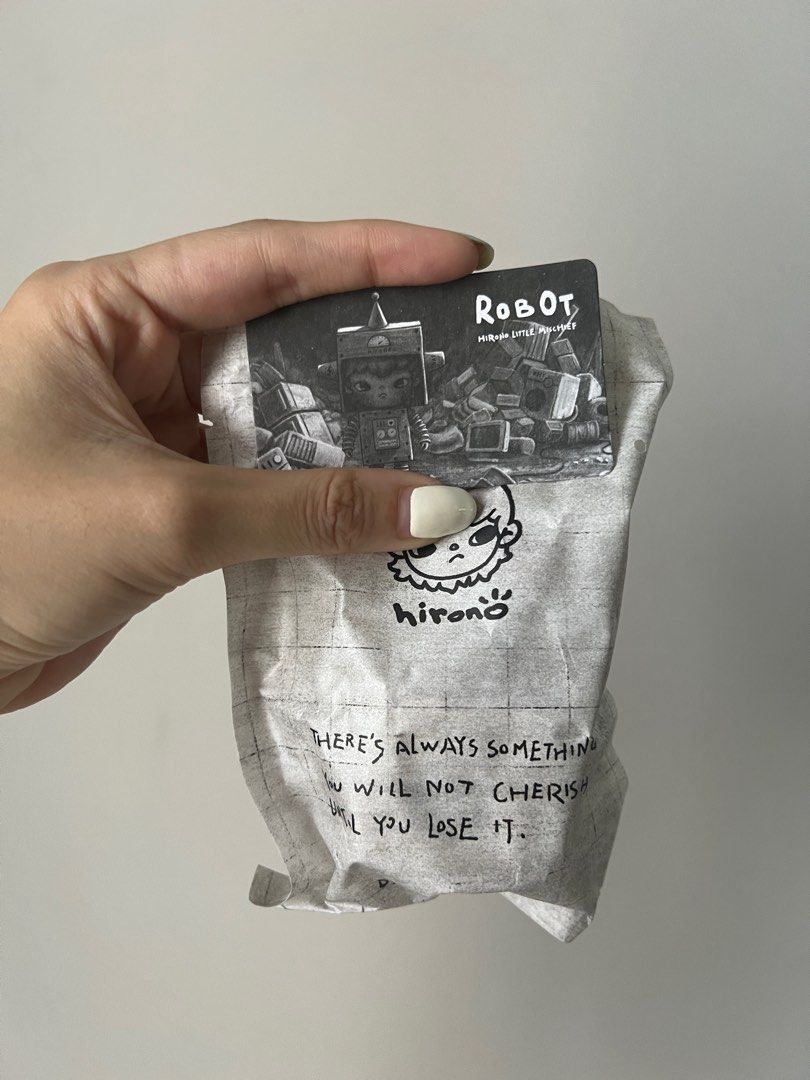 ROBOT
HIRONO LITTLE MISCHIEF
hirono
THERE'S ALWAYS SOMETHING
YOU WILL NOT CHERISH
UNTIL YOU LOSE IT.